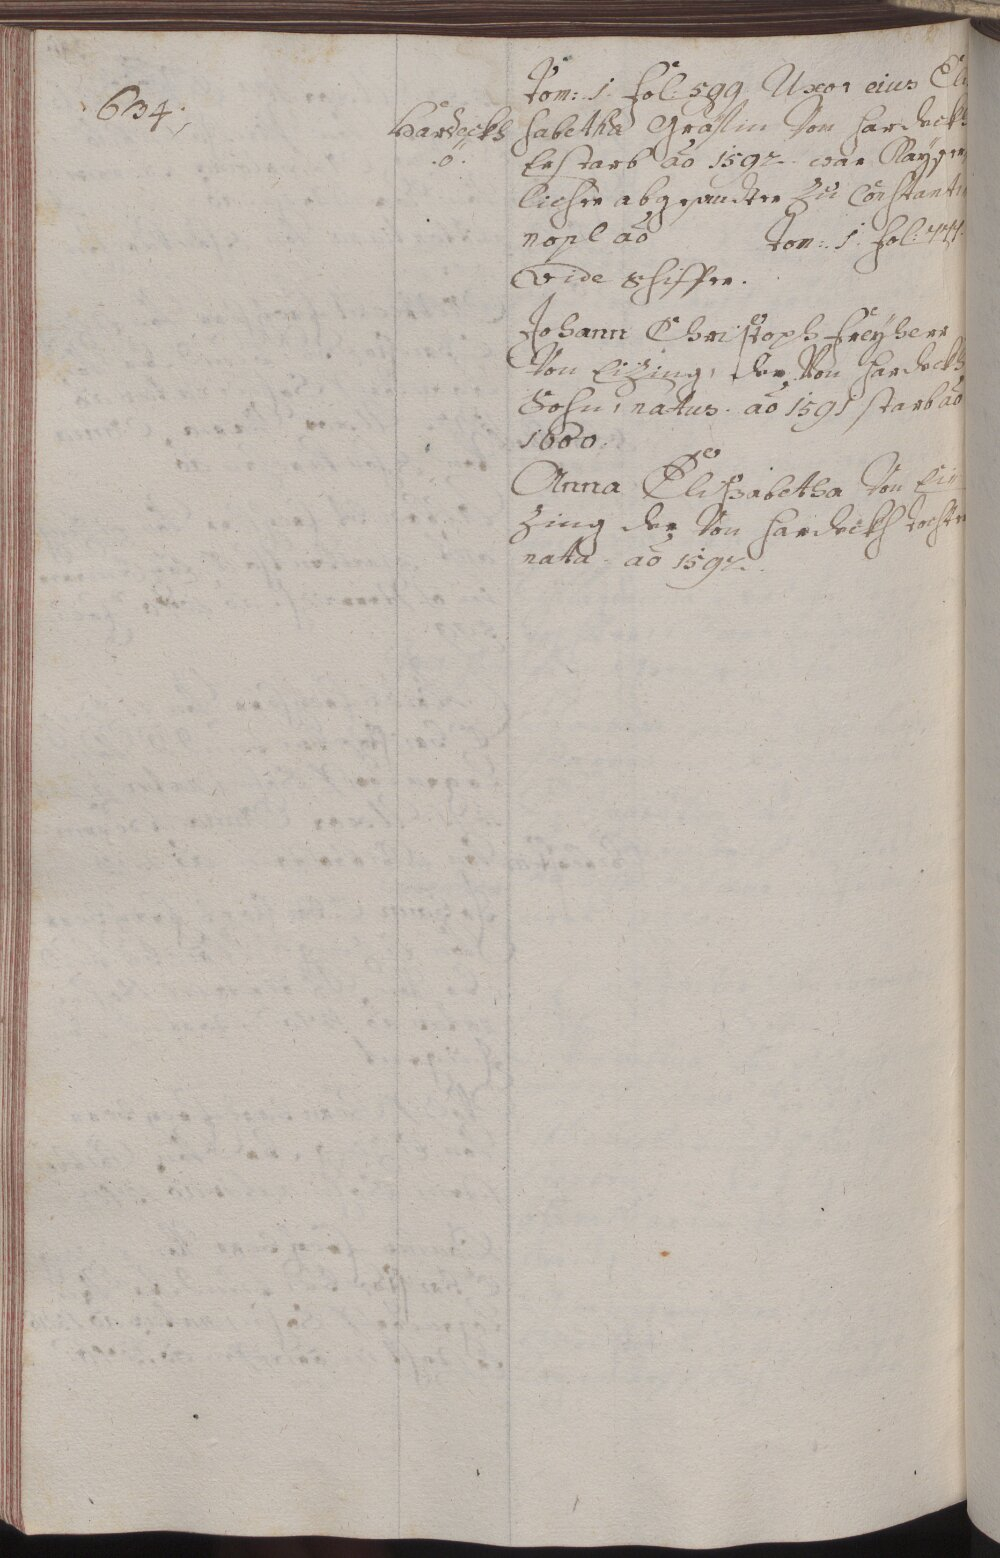 634.
Hardeckh
.ö.
Tom: 1. fol. 599. Uxor eius Eli
sabetha Gräffin Von Hardeckh
Er starb aō 1592. war Kaÿser
licher abgesandter Zu Constanti
nopl aō Tom: 1. fol:
Vide Schiffer.
Johann Christoph Freÿherr
Von Eizing, der Von Hardeckh
Sohn, natus aō 1591 starb aō
16
Anna Elisabetha Von Ei
zing der Von Hardeckh tochter
nata aō 1592.